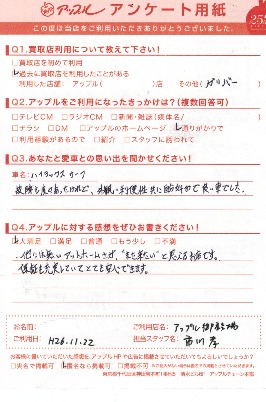 アップル アンケート用紙
この度は当店をご利用いただきありがとうございました。
Q1.買取店利用について教えて下さい!
□買取店を初めて利用
□過去に買取店を利用したことがある
利用した店舗: アップル( )店 その他( ガリバー )
Q2.アップルをご利用になったきっかけは?(複数回答可)
□テレビCM □ラジオCM □新聞・雑誌(媒体名/ )
□チラシ □DM □アップルのホームページ □通りがかりで
□利用経験があるので □紹介 □スタッフに誘われて
Q3.あなたと愛車との思い出を聞かせください!
車名: ハイラックス サーフ
Q4.アップルに対する感想をぜひお書きください!
□大満足 □満足 □普通 □もう少し □不満
他には無いアットホームさが、"また来たい"と思える場所です。
お名前:
ご利用店名: アップル
ご利用日: H26.11.22
担当スタッフ名:
お客様に書いていただいた感想を、アップルHPや広告に掲載させていただいてもよろしいでしょうか?
□実名で掲載可 □匿名なら掲載可 □掲載不可